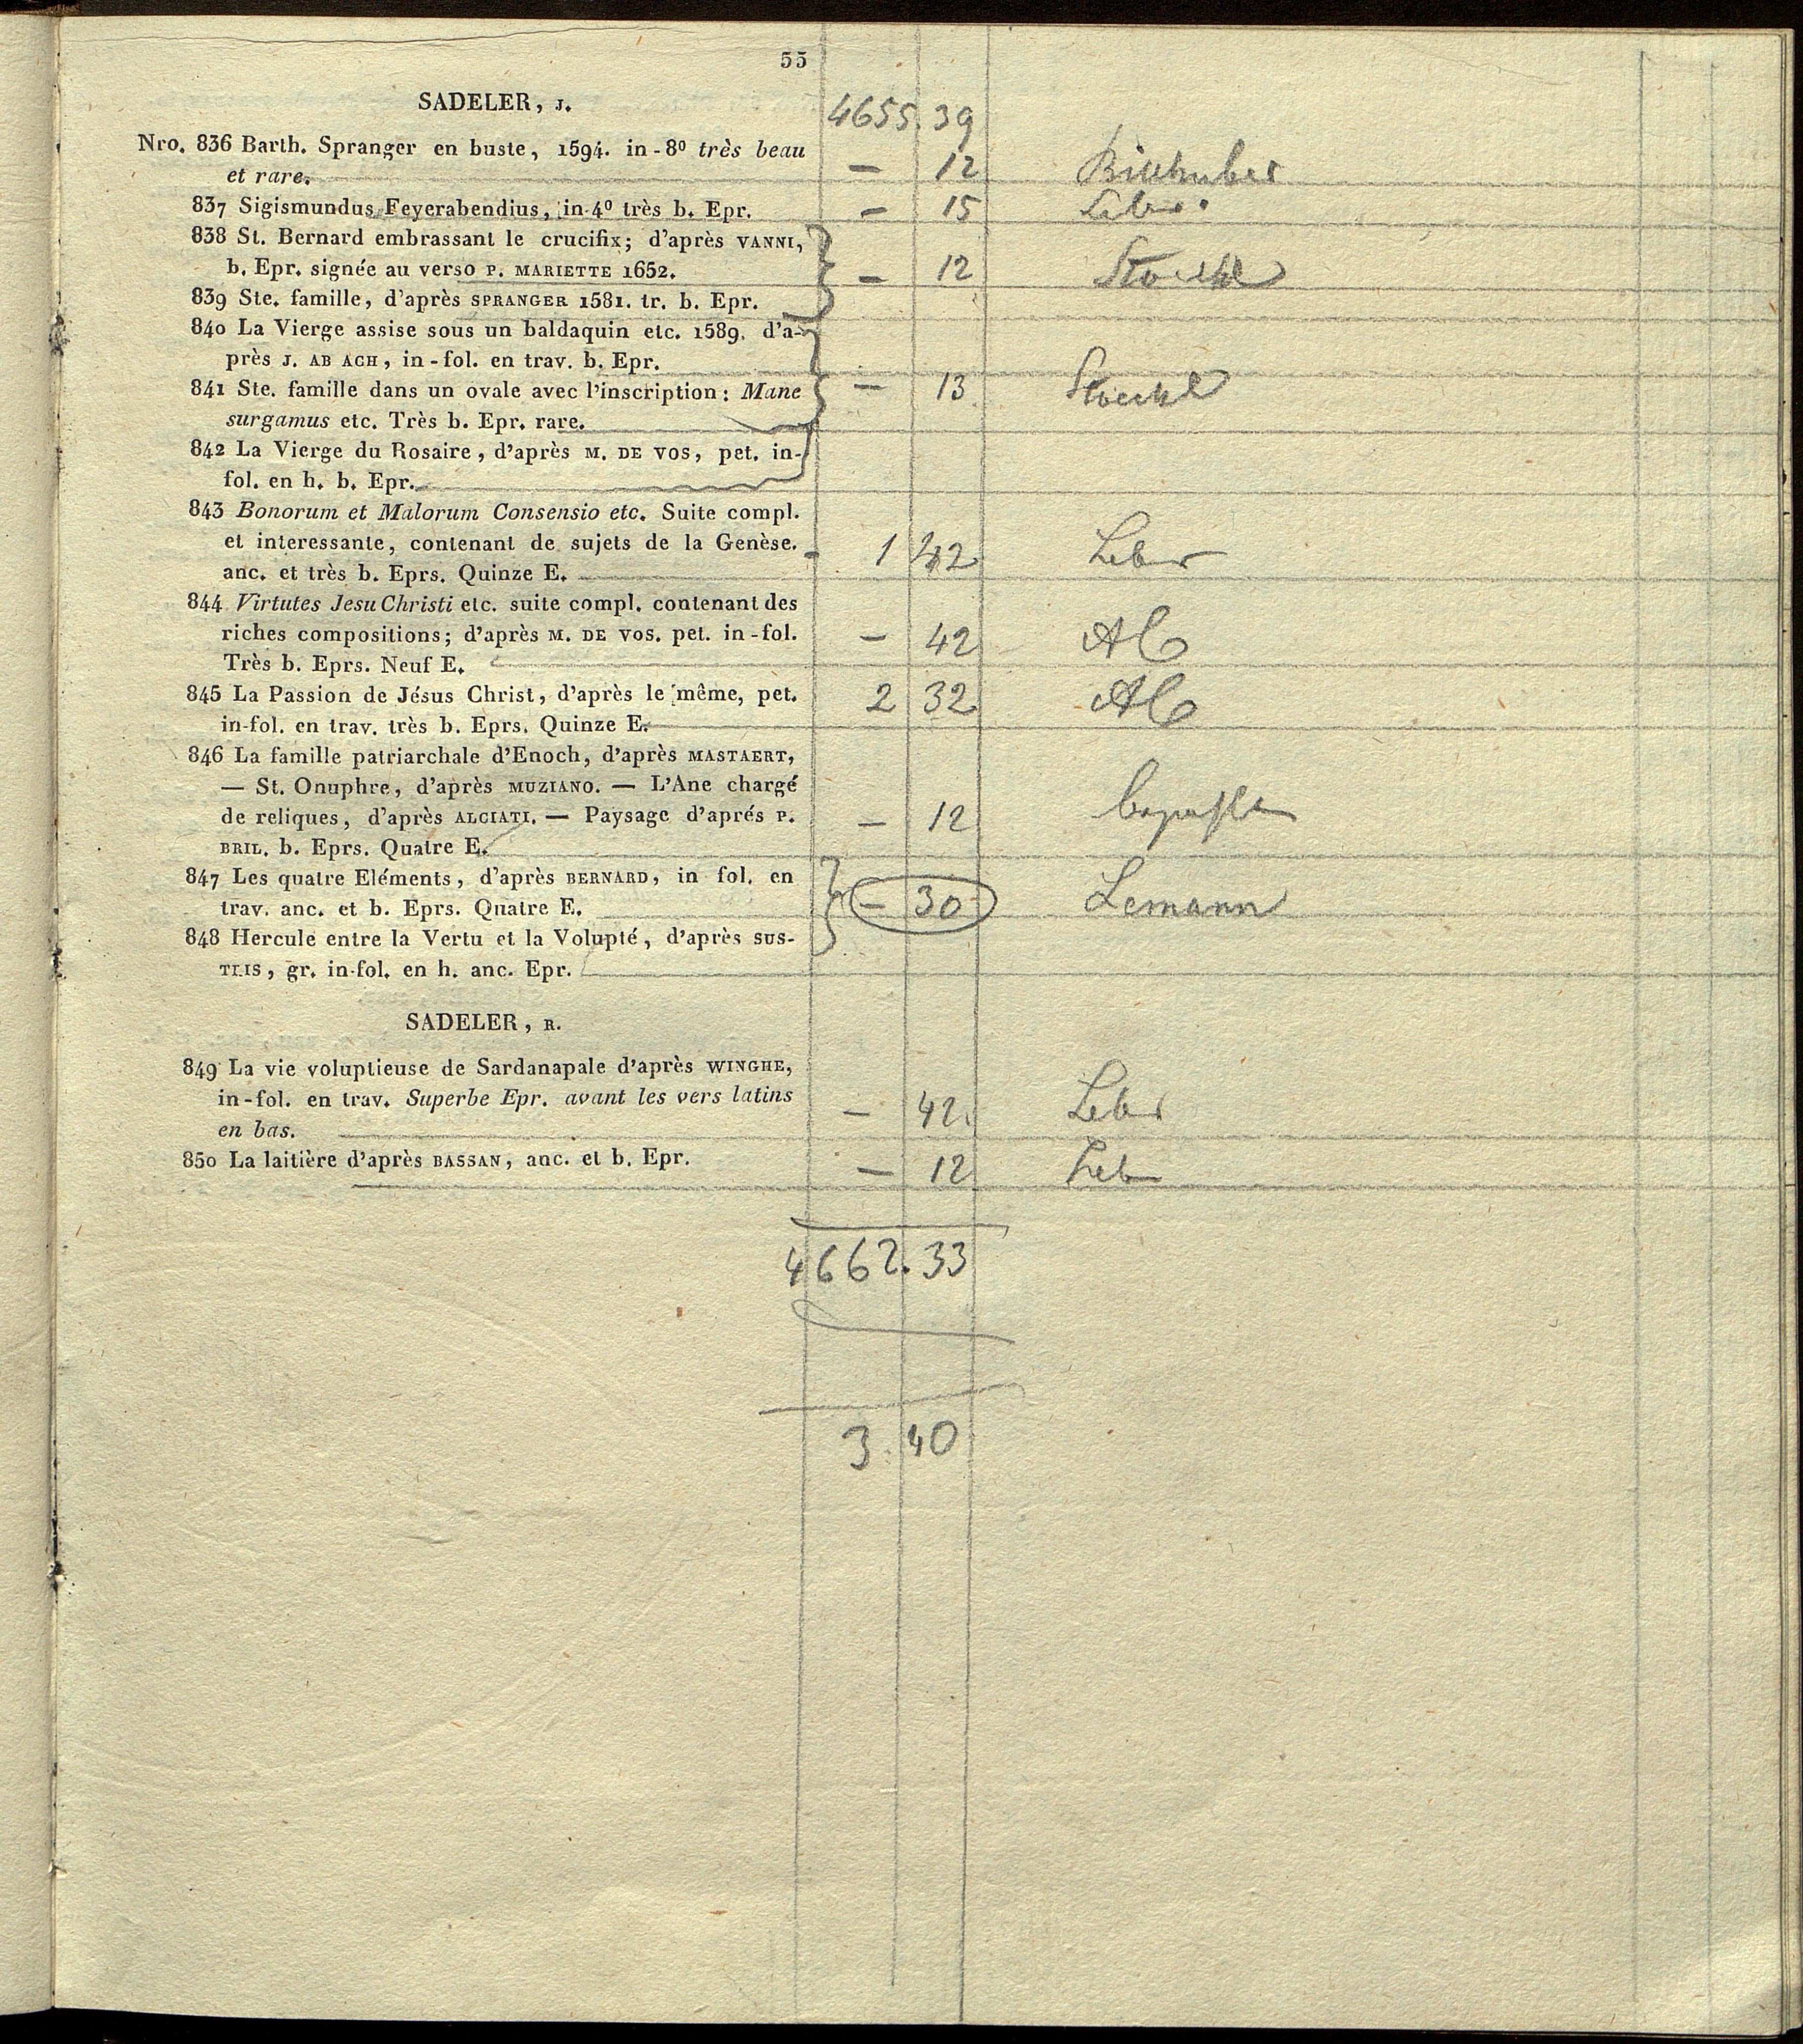 55
SADELER, J.
4655.39
Nro. 836 Barth. Spranger en buste, 1594. in-8º très beau
et rare. — 12
837 Sigismundus Feyerabendius, in-4º très b. Epr. — 15
838 St. Bernard embrassant le crucifix; d'après VANNI,
b. Epr. signée au verso P. MARIETTE 1652. — 12 Stoeckl
839 Ste. famille, d'après SPRANGER 1581. tr. b. Epr.
840 La Vierge assise sous un baldaquin etc. 1589. d'a-
près J. AB ACH, in-fol. en trav. b. Epr.
841 Ste. famille dans un ovale avec l'inscription: Mane — 13 Stoeckl
surgamus etc. Très b. Epr. rare.
842 La Vierge du Rosaire, d'après M. DE VOS, pet. in-
fol. en h. b. Epr.
843 Bonorum et Malorum Consensio etc. Suite compl.
et interessante, contenant de sujets de la Genèse. 1 42
anc. et très b. Eprs. Quinze E.
844 Virtutes Jesu Christi etc. suite compl. contenant des
riches compositions; d'après M. DE VOS. pet. in-fol. — 42
Très b. Eprs. Neuf E.
845 La Passion de Jésus Christ, d'après le même, pet. 2 32
in-fol. en trav. très b. Eprs. Quinze E.
846 La famille patriarchale d'Enoch, d'après MASTAERT,
— St. Onuphre, d'après MUZIANO. — L'Ane chargé
de reliques, d'après ALCIATI. — Paysage d'aprés P. — 12
BRIL. b. Eprs. Quatre E.
847 Les quatre Eléments, d'après BERNARD, in fol. en
trav. anc. et b. Eprs. Quatre E. — 30 Lemann
848 Hercule entre la Vertu et la Volupté, d'après SUS-
TRIS, gr. in-fol. en h. anc. Epr.
SADELER, R.
849 La vie voluptieuse de Sardanapale d'après WINGHE,
in-fol. en trav. Superbe Epr. avant les vers latins — 42
en bas.
850 La laitière d'après BASSAN, anc. et b. Epr. — 12
4662.33
3.40